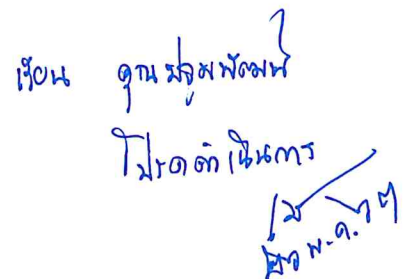 เรียน คุณปฐมพัฒน์
โปรดดำเนินการ
พ.ค.